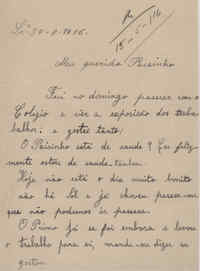 Meu querido Paisinho
Fui no domingo passear com o
Colegio a vêr a exposição dos traba
lhos, e gostei tanto!
O Paisinho está de saude? Eu feliz
mente estou de saude
Hoje não está o dia muito bonito
não há Sol e já choveu parece-me
que não podemos ir passear.
O Primo já se foi embora e levou
o trabalho para si, mande-me dizer se
gostou